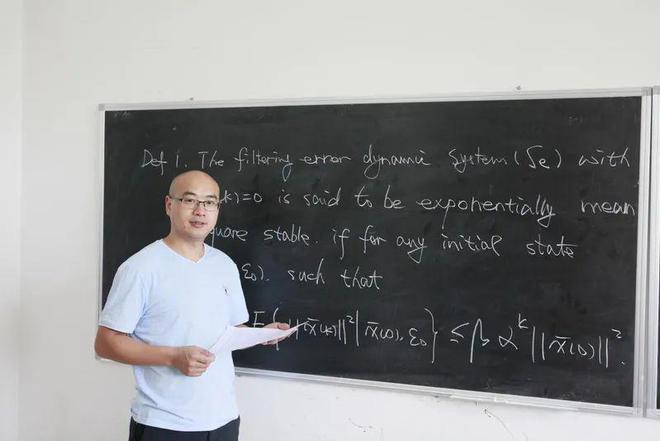 Def 1. The filtering error dynamic System (Se) with
(k)=0 is said to be exponentially mean
quare stable. if for any initial state
ε0). such that
E{||x̄(k)||²|x̄(0),ε0} ≤ β α^k ||x̄(0)||².